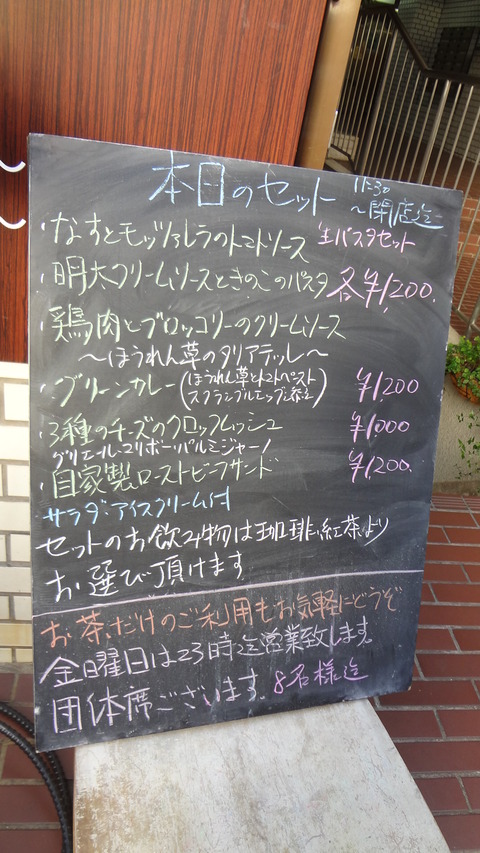 本日のセット 11:30
～閉店迄
・なすとモッツァレラのトマトソース 生パスタセット
・明太クリームソースときのこのパスタ 各¥1,200.
・鶏肉とブロッコリーのクリームソース
～ほうれん草のタリアテッレ～
・グリーンカレー(ほうれん草とトマトペースト ¥1200
スクランブルエッグ添え)
・3種のチーズのクロックムッシュ ¥1,000
グリエール・マリボー・パルミジャーノ
・自家製ローストビーフサンド ¥1,200.
サラダ・アイスクリーム付
セットのお飲み物は珈琲、紅茶より
お選び頂けます
お茶だけのご利用もお気軽にどうぞ
金曜日は23時迄営業致します。
団体席ございます。8名様迄